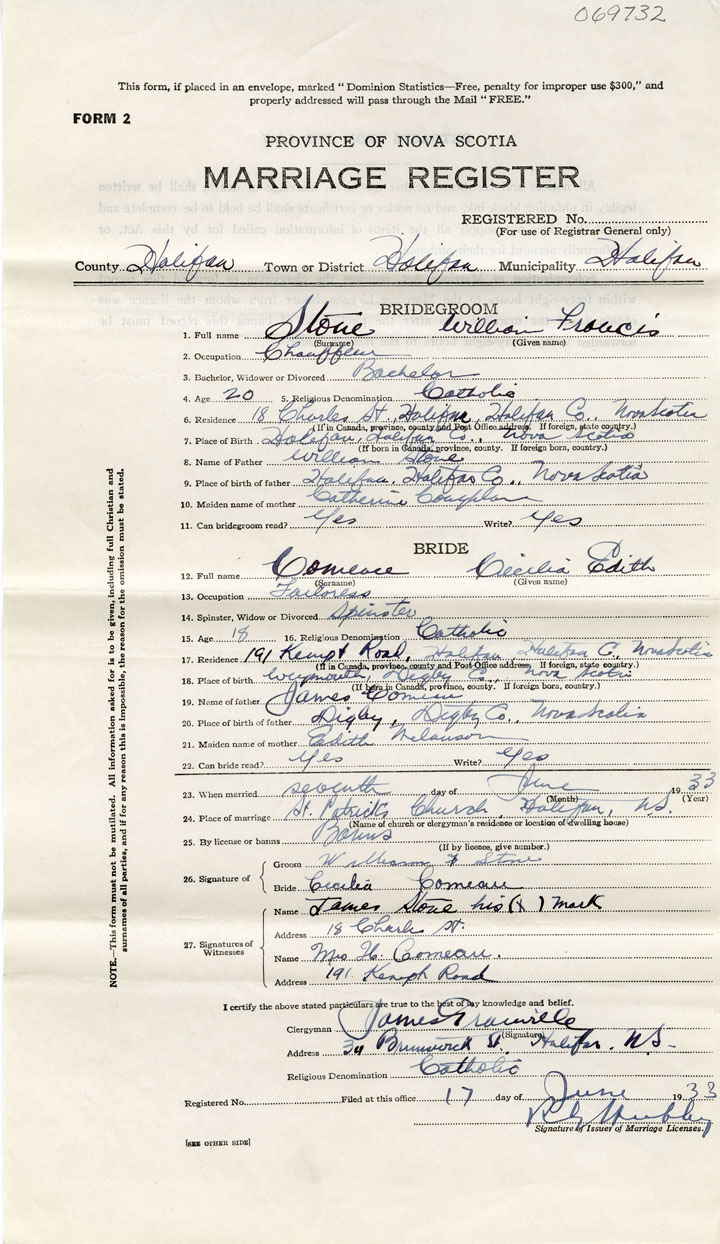 069732
This form, if placed in an envelope, marked "Dominion Statistics—Free, penalty for improper use $300," and
properly addressed will pass through the Mail "FREE."
FORM 2
PROVINCE OF NOVA SCOTIA
MARRIAGE REGISTER
REGISTERED No.
(For use of Registrar General only)
County Halifax Town or District Halifax Municipality Halifax
BRIDEGROOM
1. Full name Stone William Francis
(Surname) (Given name)
2. Occupation Chauffeur
3. Bachelor, Widower or Divorced Bachelor
4. Age 20 5. Religious Denomination Catholic
6. Residence 18 Charles St., Halifax, Halifax Co., Nova Scotia
(If in Canada, province, county and Post Office address. If foreign, state country.)
7. Place of Birth Halifax, Halifax Co., Nova Scotia
(If born in Canada, province, county. If foreign born, country.)
8. Name of Father William Stone
9. Place of birth of father Halifax, Halifax Co., Nova Scotia
10. Maiden name of mother Catherine Coughlan
11. Can bridegroom read? Yes Write? Yes
BRIDE
12. Full name Comeau Cecilia Edith
(Surname) (Given name)
13. Occupation Tailoress
14. Spinster, Widow or Divorced Spinster
15. Age 18 16. Religious Denomination Catholic
17. Residence 191 Kempt Road, Halifax, Halifax C., Nova Scotia
(If in Canada, province, county and Post Office address. If foreign, state country.)
18. Place of birth Weymouth, Digby C., Nova Scotia
(If born in Canada, province, county. If foreign born, country.)
19. Name of father James Comeau
20. Place of birth of father Digby, Digby Co., Nova Scotia
21. Maiden name of mother Edith Melanson
22. Can bride read? Yes Write? Yes
23. When married seventh day of June 1933
(Month) (Year)
24. Place of marriage St. Patrick's Church, Halifax, N.S.
(Name of church or clergyman's residence or location of dwelling house)
25. By license or banns Banns
(If by licence, give number.)
26. Signature of
Groom William F Stone
Bride Cecilia Comeau
27. Signatures of Witnesses
Name James Stone his (X) mark
Address 18 Charles St.
Name Mrs H. Comeau.
Address 191 Kempt Road
I certify the above stated particulars are true to the best of my knowledge and belief.
Clergyman James
(Signature)
Address 34 Brunswick St. Halifax. N.S-
Religious Denomination Catholic
Registered No. Filed at this office 17 day of June 1933
Signature of Issuer of Marriage Licenses.
[SEE OTHER SIDE]
NOTE.—This form must not be mutilated. All information asked for is to be given, including full Christian and
surnames of all parties, and if for any reason this is impossible, the reason for the omission must be stated.